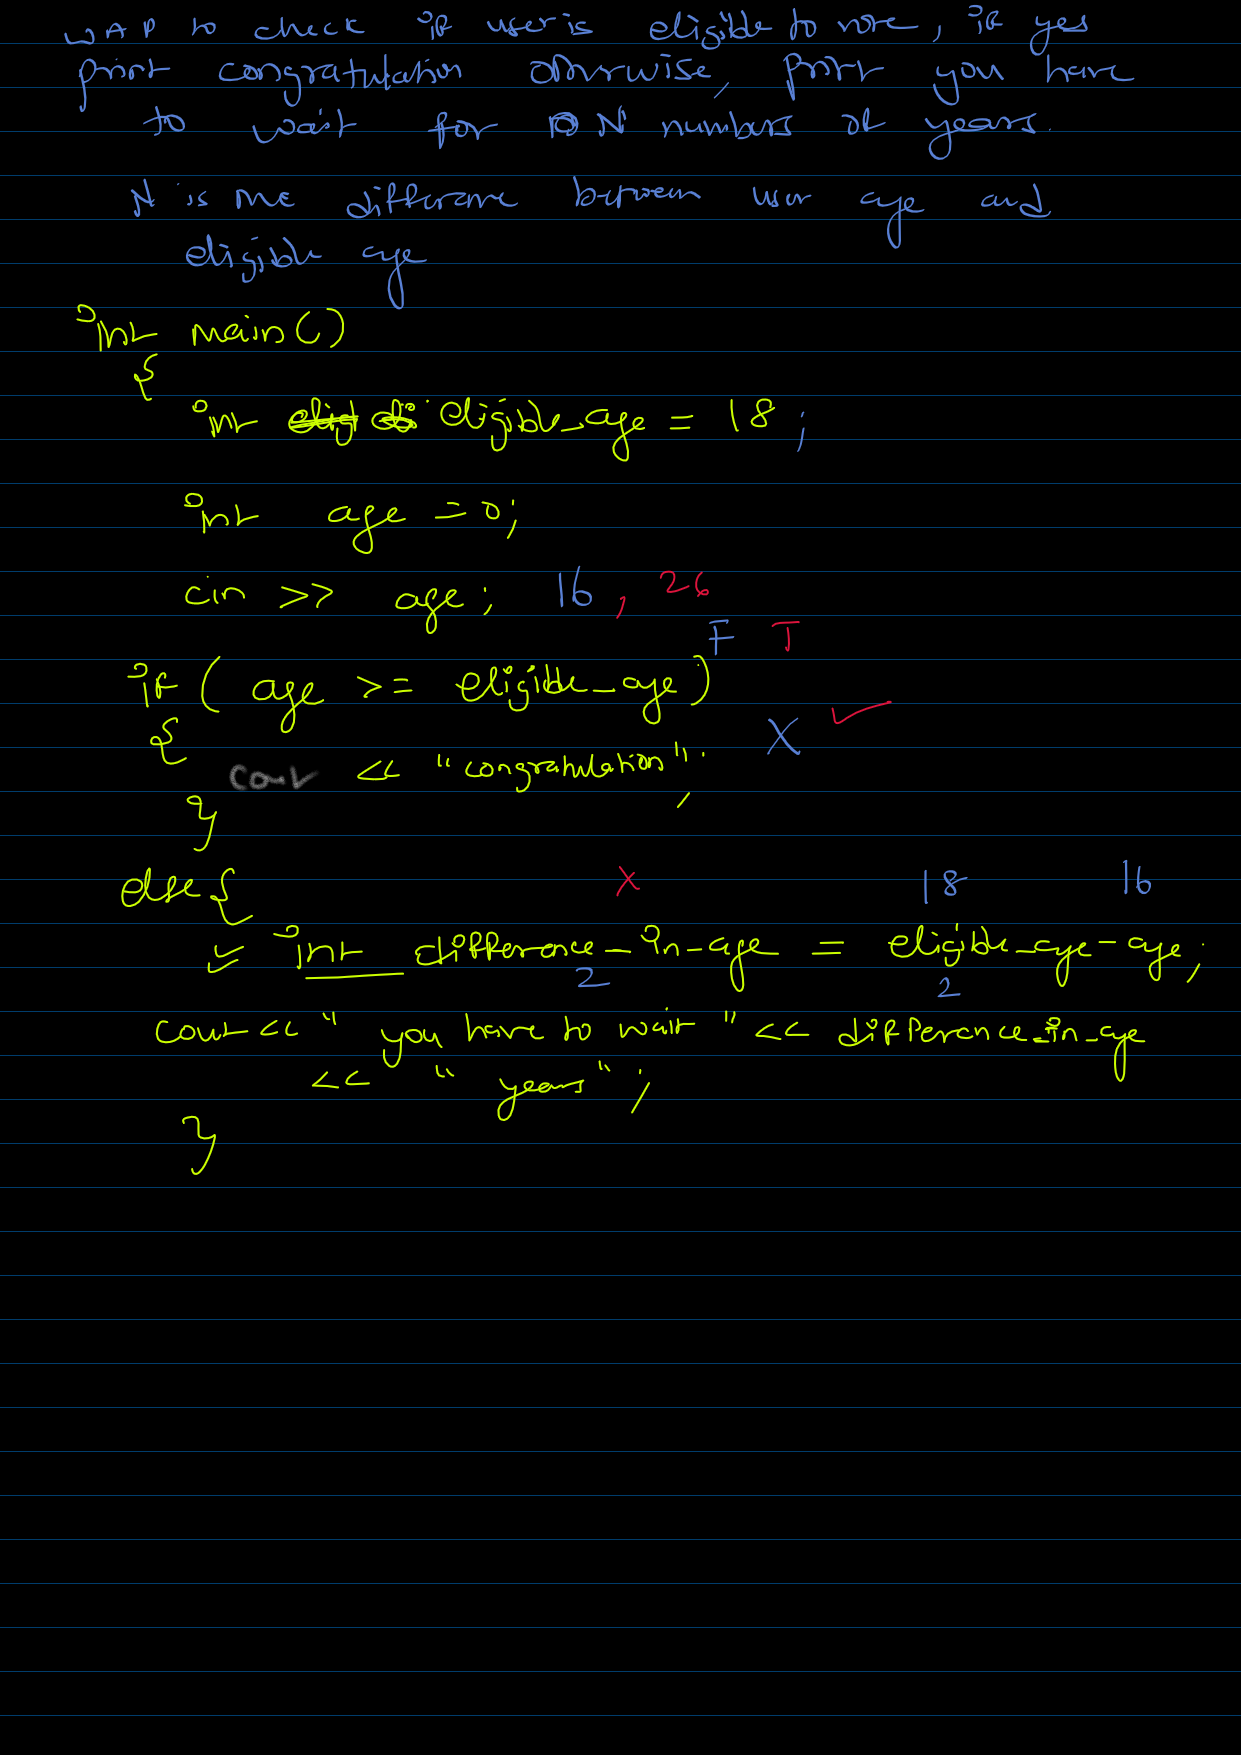 WAP to check if user is eligible to vote, if yes
print congratulation otherwise, print you have
to wait for N numbers of years.
N is the difference between user age and
eligible age
int main()
{
int eligible_age = 18;
int age = 0;
cin >> age; 16, 26
F T
if ( age >= eligible_age)
{
X ✓
cout << "congratulation";
}
else {
X 18 16
✓ int difference_in_age = eligible_age - age;
2 2
cout << " you have to wait " << difference_in_age
<< " years";
}